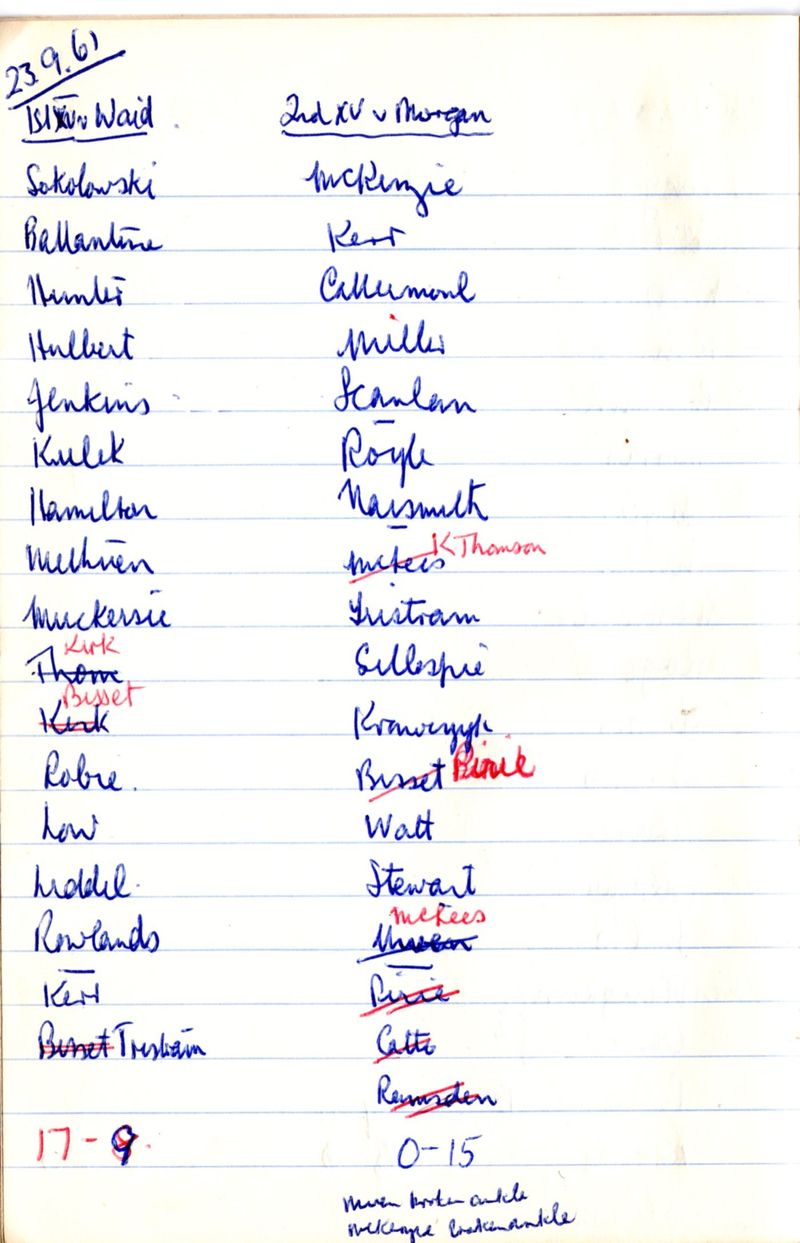 23.9.61
1st XV v Waid
Sokolowski
Ballantine
Hunter
Hulbert
Jenkins
Kulek
Hamilton
Methven
Muckersie
Kirk
Thom
Bisset
Kirk
Robie.
Low
Liddel.
Rowlands
Kerr
Bisset Tristram
17-9
2nd XV v Morgan
McKenzie
Kerr
Miller
Scanlan
Royle
Naismith
McFees K Thomson
Tristram
Gillespie
Krawczyk
Bisset Pirie
Watt
Stewart
McFees
Pirie
Catto
Ramsden
0-15
broken ankle
McKenzie broken ankle